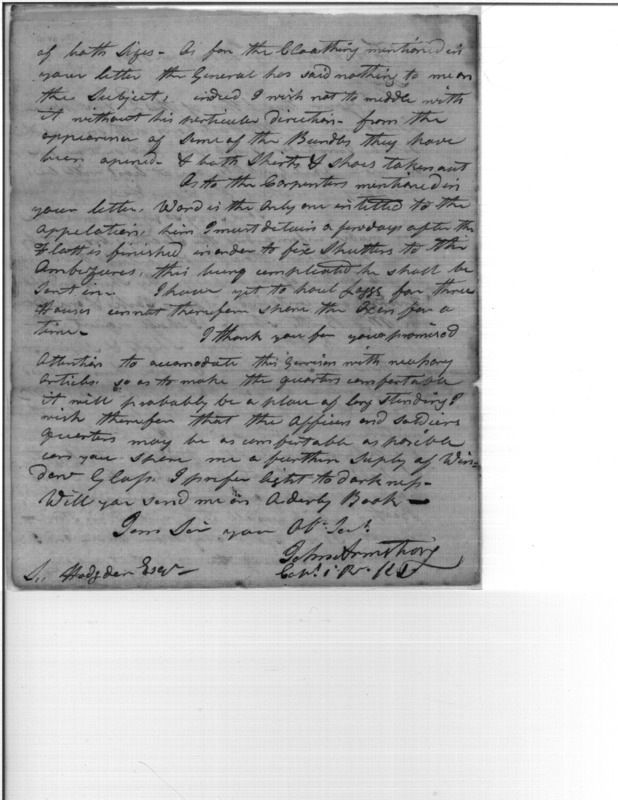 of both Sizes - As for the Cloathing mentioned in
your letter the General has said nothing to me on
the Subject, indeed I wish not to middle with
it without his perticular direction - from the
appearance of some of the Bundles they have
been opened - & both Shirts & Shoes taken out
As to the Carpenters mentioned in
your letter, Ward is the only one intitled to the
appelation, him I must detain a few days after the
Flatt is finished in order to fix Shutters to the
Ambuzures, this being complicated he shall be
sent in - I have yet to haul loggs for three
Houses cannot therefore spare the Oxen for a
time -
I thank you for your promised
Attention to acomodate this Garrison with necessary
Articles so as to make the quarters comfortable
it will probably be a place of long standing I
wish therefore that the Officers and soldiers
quarters may be as comfortable as posible
can you spare me a further suply of Win=
dow Glass I prefer light to darkness -
Will you send me an Orderly Book -
I am Sir your Obt Sert
John Armstrong
Capt 1st R
S. Hodgden Esqr -